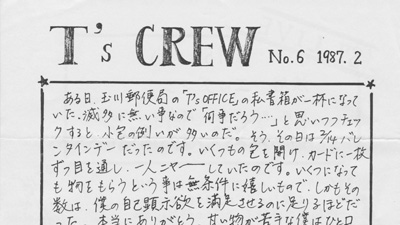 T's CREW No.6 1987.2
ある日、玉川郵便局の「T's OFFICE」の私書箱が一杯になって
いた。滅多に無い事なので「何事だろう…」と思いつつチェッ
クすると、小包の類いが多いのだ。そう、その日は2/14バレン
タインデーだったのです。いくつもの包を開け、カードに一枚
ずつ目を通し、一人ニヤーーしていたのです。いくつになって
も物をもらうという事は無条件に嬉しいもので、しかもその
数は、僕の自己顕示欲を満足させるのに足りるほどだ
った。本当にありがとう。甘い物が苦手な僕はひと口